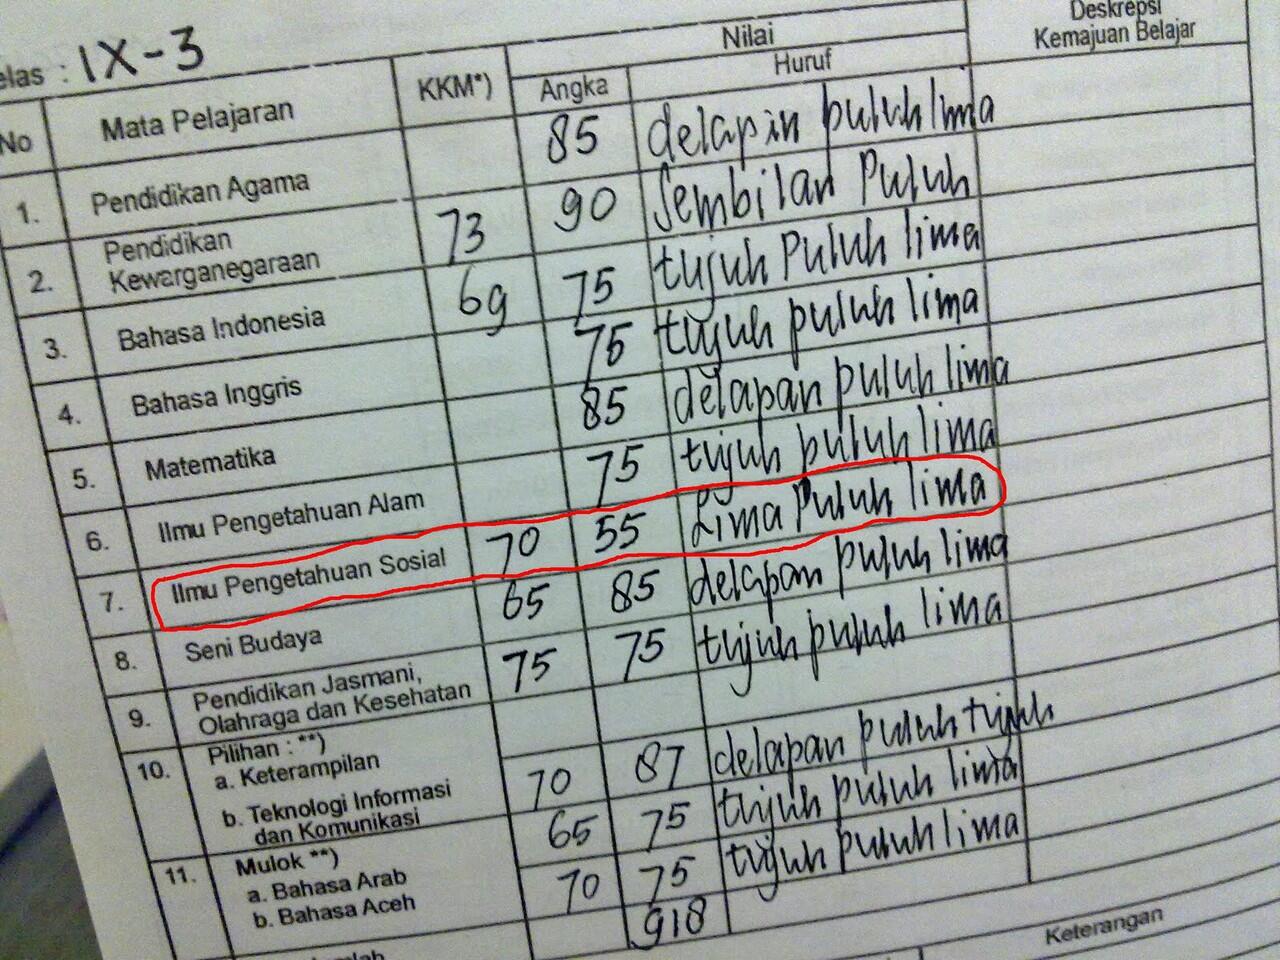 elas : IX-3
No Mata Pelajaran KKM*) Nilai Deskrepsi Kemajuan Belajar
Angka Huruf
1. Pendidikan Agama 85 delapin puluh lima
2. Pendidikan Kewarganegaraan 73 90 Sembilan Puluh
3. Bahasa Indonesia 69 75 tujuh Puluh lima
4. Bahasa Inggris 75 tujuh puluh lima
5. Matematika 85 delapan puluh lima
6. Ilmu Pengetahuan Alam 75 tujuh puluh lima
7. Ilmu Pengetahuan Sosial 70 55 Lima Puluh lima
8. Seni Budaya 65 85 delapan puluh lima
9. Pendidikan Jasmani, Olahraga dan Kesehatan 75 75 tujuh puluh lima
10. Pilihan : **)
a. Keterampilan 70 87 delapan puluh tujuh
b. Teknologi Informasi dan Komunikasi 65 75 tujuh puluh lima
11. Mulok **)
a. Bahasa Arab 70 75 tujuh puluh lima
b. Bahasa Aceh
918
Keterangan